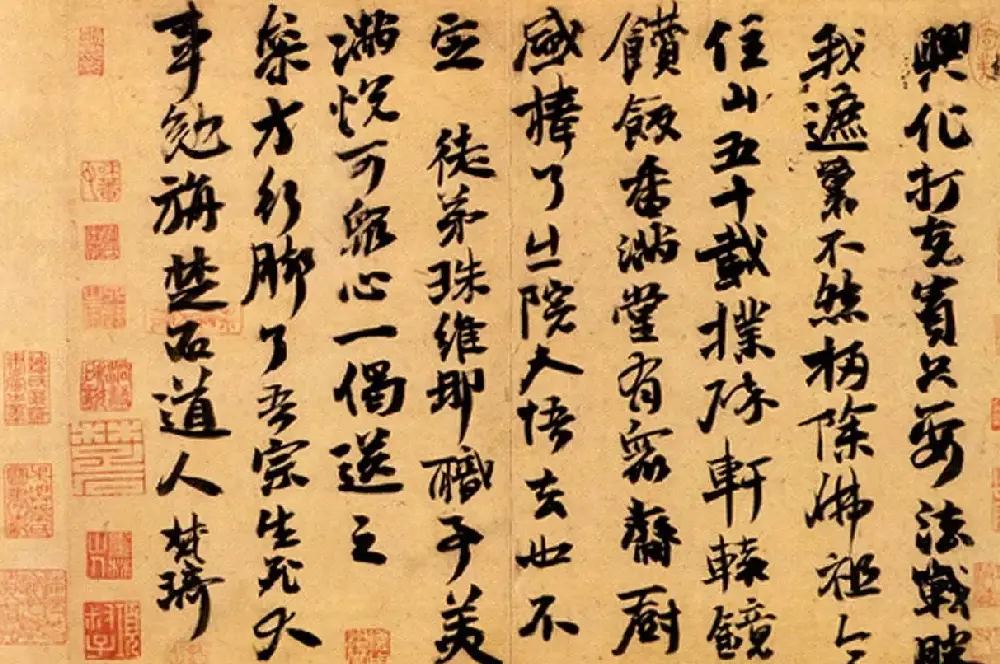 興化打克賓只要法戰勝
我遮裏不然柄除佛祖令
住山五十載撲碎軒轅鏡
饋飯香滿堂有眾齋廚
感棒了出院大悟去也不
徒弟珠維那職予美
滿悅可眾心一偈送之
參方行脚了吾宗生死大
事勉旃楚石道人梵琦